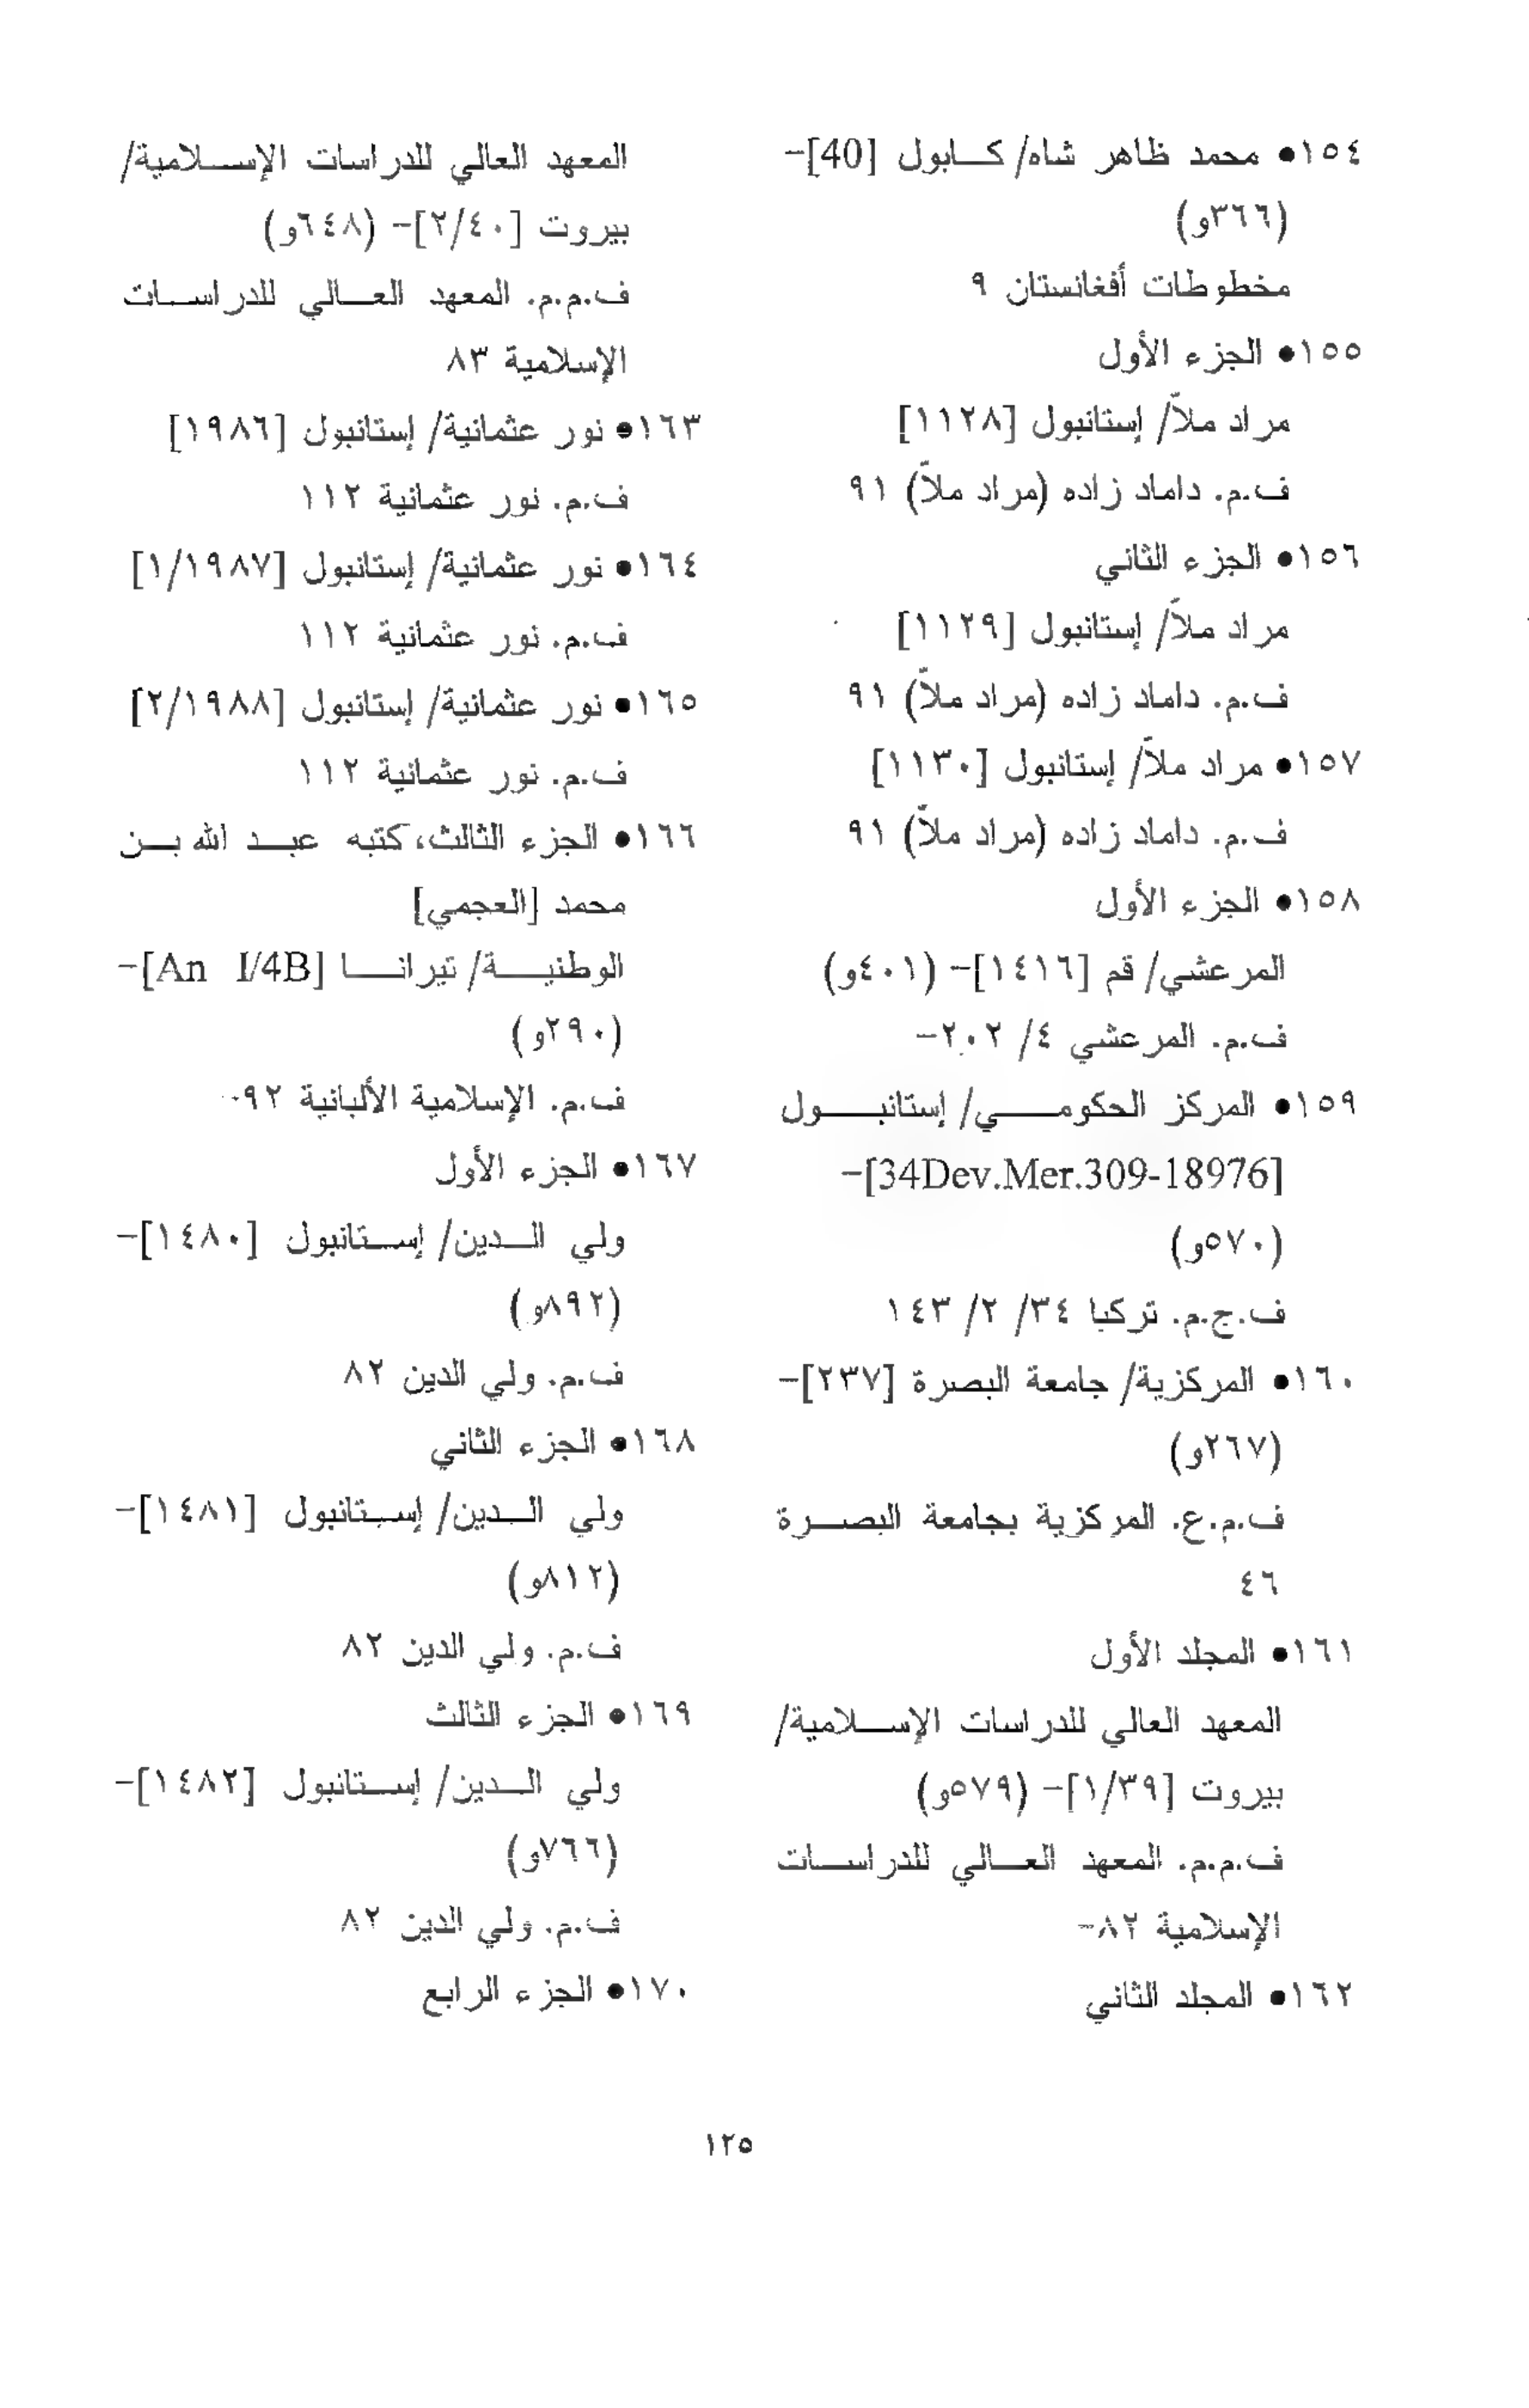 ١٥٤● محمد ظاهر شاه/ كابول [40]-
(٣٦٦و)
مخطوطات أفغانستان ٩
١٥٥● الجزء الأول
مراد ملاّ/ إستانبول [١١٢٨]
ف.م. داماد زاده (مراد ملاّ) ٩١
١٥٦● الجزء الثاني
مراد ملاّ/ إستانبول [١١٢٩]
ف.م. داماد زاده (مراد ملاّ) ٩١
١٥٧● مراد ملاّ/ إستانبول [١١٣٠]
ف.م. داماد زاده (مراد ملاّ) ٩١
١٥٨● الجزء الأول
المرعشي/ قم [١٤١٦]- (٤٠١و)
ف.م. المرعشي ٤/ ٢٠٢-
١٥٩● المركز الحكومي/ إستانبول
[34Dev.Mer.309-18976]-
(٥٧٠و)
ف.ج.م. تركيا ٣٤/ ٢/ ١٤٣
١٦٠● المركزية/ جامعة البصرة [٢٣٧]-
(٢٦٧و)
ف.م.ع. المركزية بجامعة البصرة
٤٦
١٦١● المجلد الأول
المعهد العالي للدراسات الإسلامية/
بيروت [١/٣٩]- (٥٧٩و)
ف.م.م. المعهد العالي للدراسات
الإسلامية ٨٢-
١٦٢● المجلد الثاني
المعهد العالي للدراسات الإسلامية/
بيروت [٢/٤٠]- (٦٤٨و)
ف.م.م. المعهد العالي للدراسات
الإسلامية ٨٣
١٦٣● نور عثمانية/ إستانبول [١٩٨٦]
ف.م. نور عثمانية ١١٢
١٦٤● نور عثمانية/ إستانبول [١/١٩٨٧]
ف.م. نور عثمانية ١١٢
١٦٥● نور عثمانية/ إستانبول [٢/١٩٨٨]
ف.م. نور عثمانية ١١٢
١٦٦● الجزء الثالث، كتبه عبد الله بن
محمد [العجمي]
الوطنية/ تيرانا [An I/4B]-
(٢٩٠و)
ف.م. الإسلامية الألبانية ٩٢-
١٦٧● الجزء الأول
ولي الدين/ إستانبول [١٤٨٠]-
(٨٩٢و)
ف.م. ولي الدين ٨٢
١٦٨● الجزء الثاني
ولي الدين/ إستانبول [١٤٨١]-
(٨١٢و)
ف.م. ولي الدين ٨٢
١٦٩● الجزء الثالث
ولي الدين/ إستانبول [١٤٨٢]-
(٧٦٦و)
ف.م. ولي الدين ٨٢
١٧٠● الجزء الرابع
١٢٥